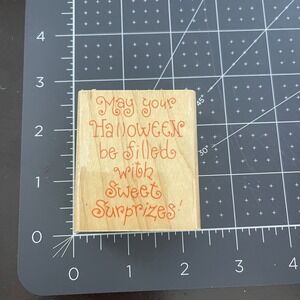 May your
Halloween
be filled
with
Sweet
Surprizes!
4
3
2
1
0
0
1
2
3
4
45°
30°